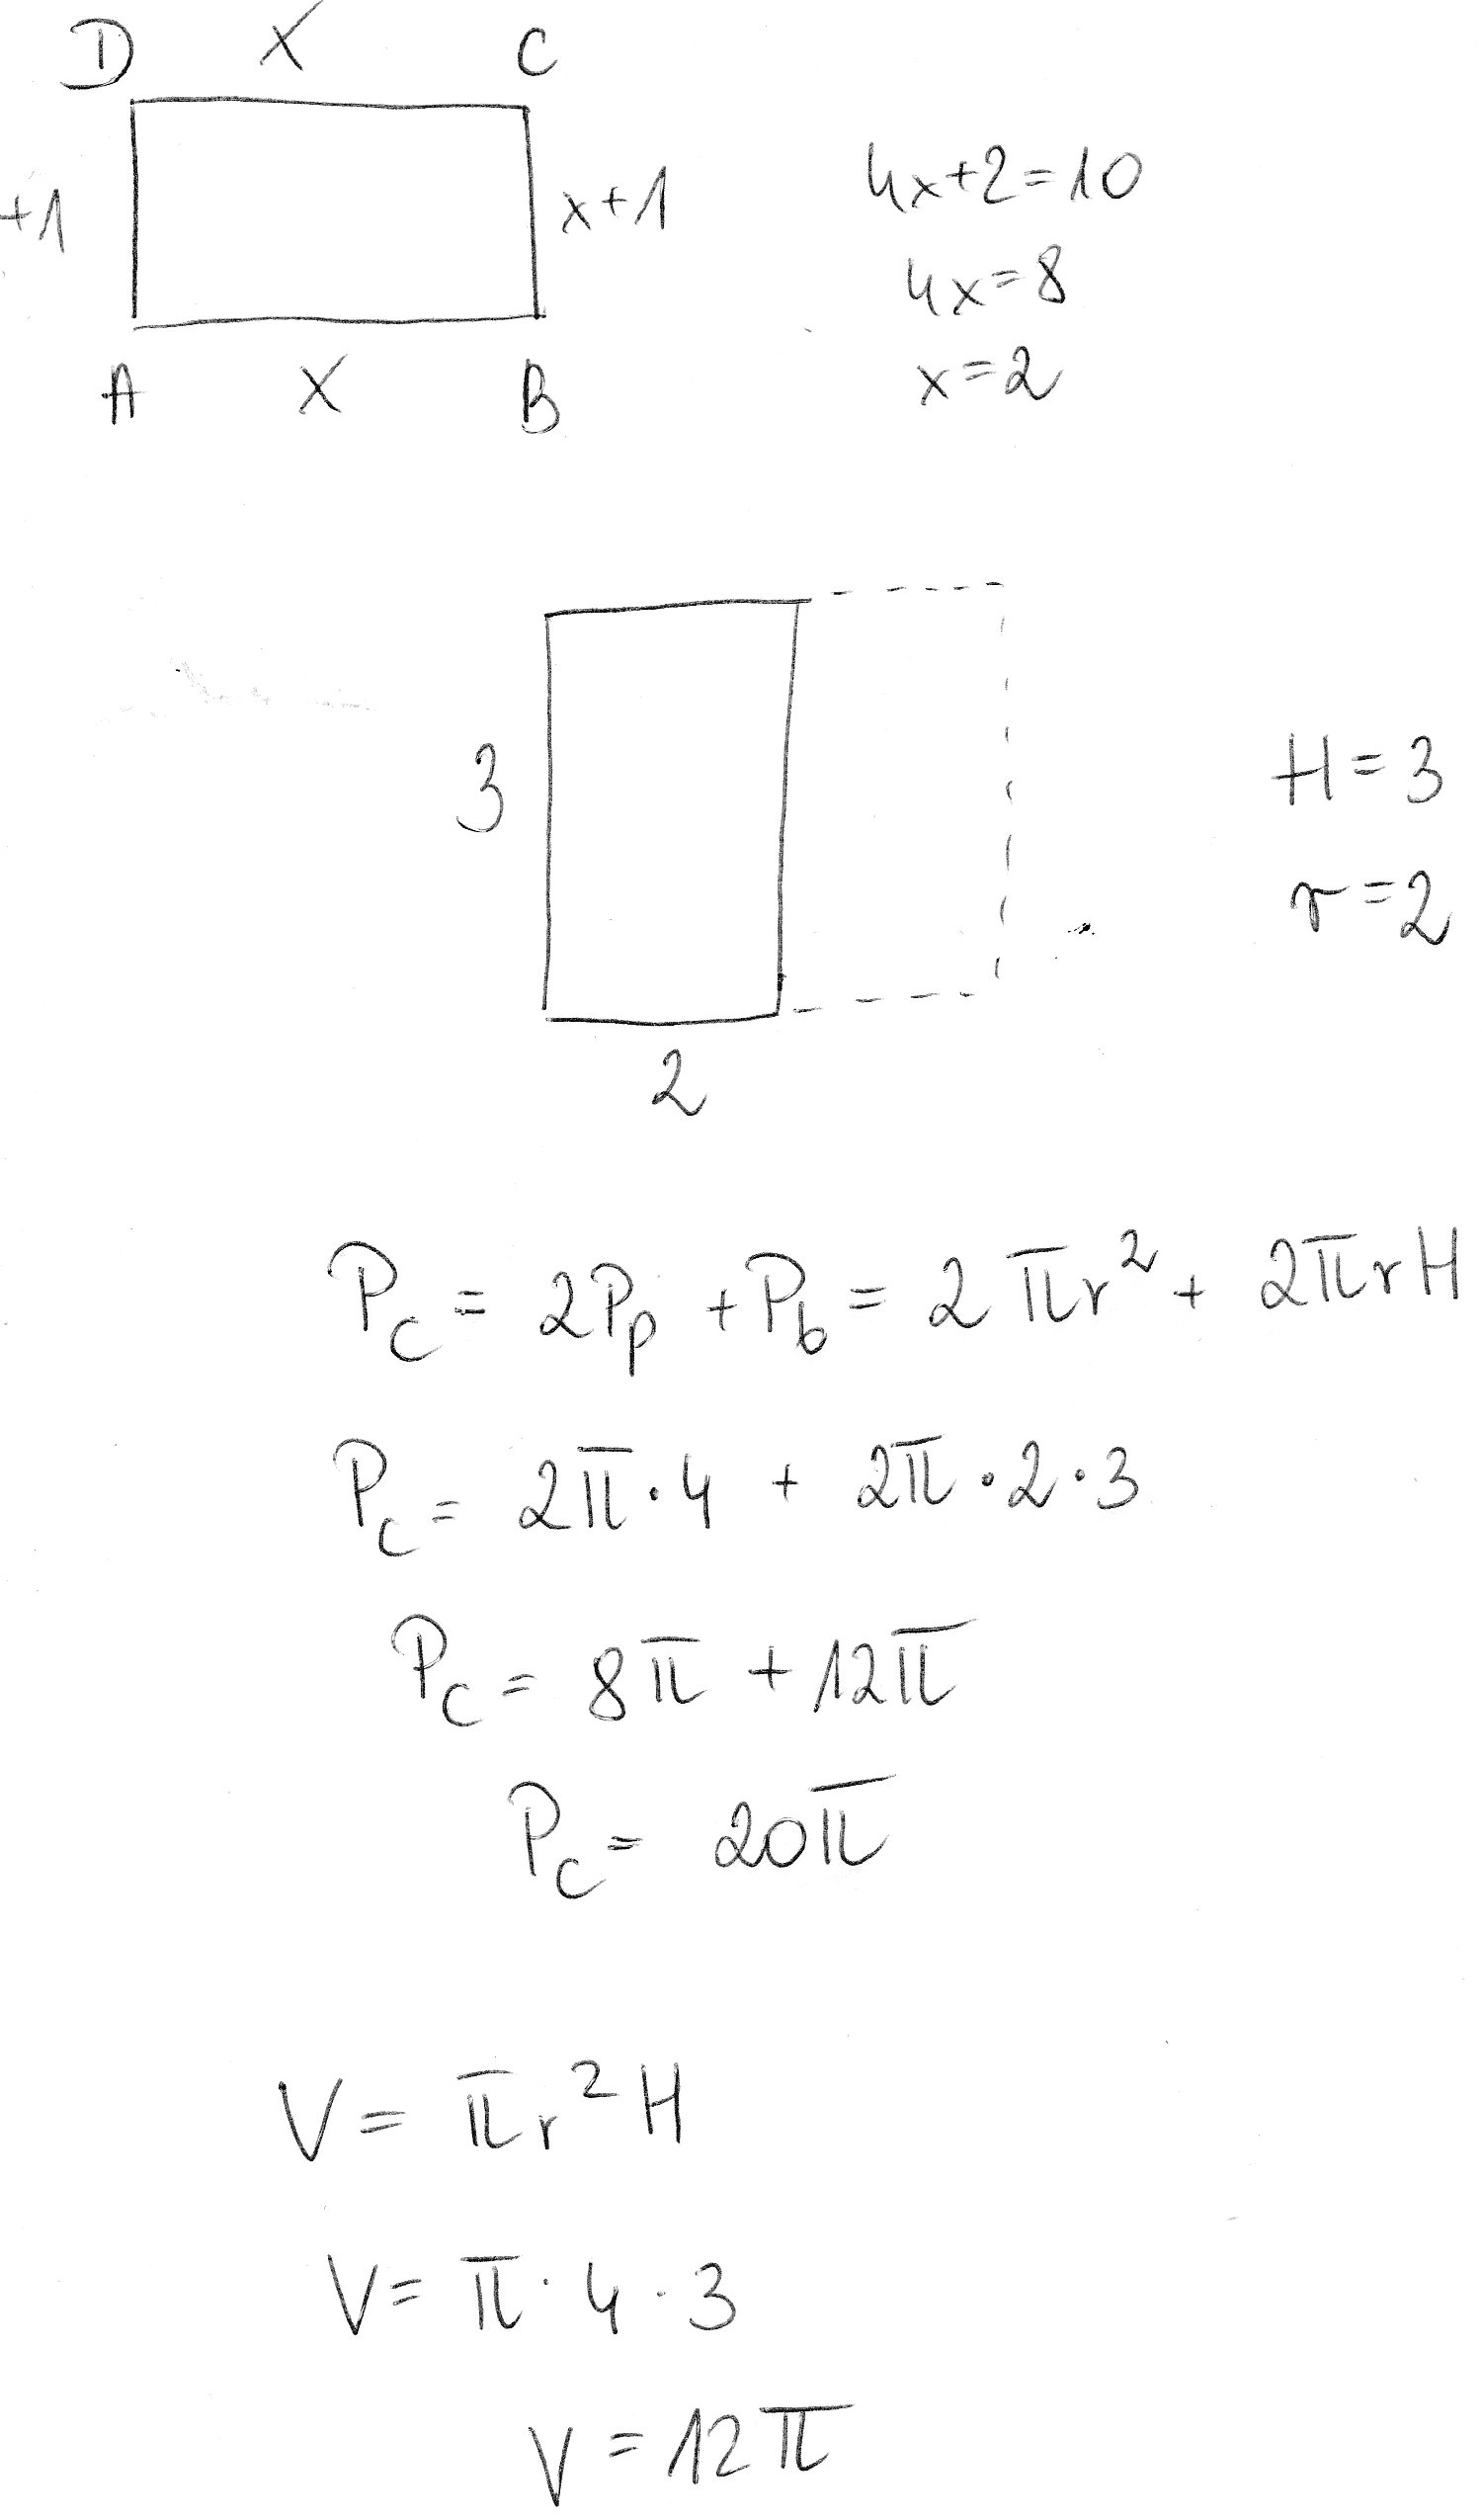 D x C
+1 x+1
A x B
4x+2=10
4x=8
x=2
3
2
H=3
r=2
P_c = 2P_p + P_b = 2πr² + 2πrH
P_c = 2π·4 + 2π·2·3
P_c = 8π + 12π
P_c = 20π
V = πr²H
V = π·4·3
V = 12π